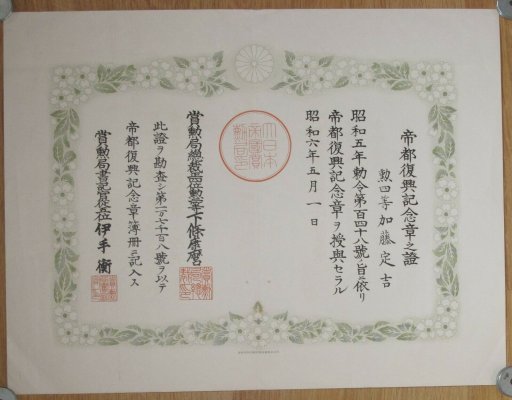 帝都復興記念章之證
勲四等加藤定吉
昭和五年勅令第百四十八號ノ旨ニ依リ
帝都復興記念章ヲ授與セラル
昭和六年五月一日
大日本帝國賞勲局印
賞勲局總裁 下條康麿
此證ヲ勘査シ第一万七千百八號ヲ以テ
帝都復興記念章簿冊ニ記入ス
賞勲局書記官 伊手衛